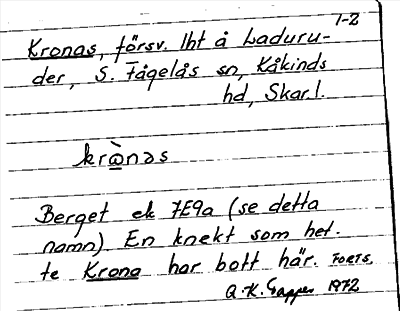 1-2
Kronas, försv. lht å Laduru-
der, S. Fågelås sn, Kåkinds
hd, Skarl.
Berget ek 7E9a (se detta
namn) En knekt som het-
te Krona har bott här. FORTS.
1972